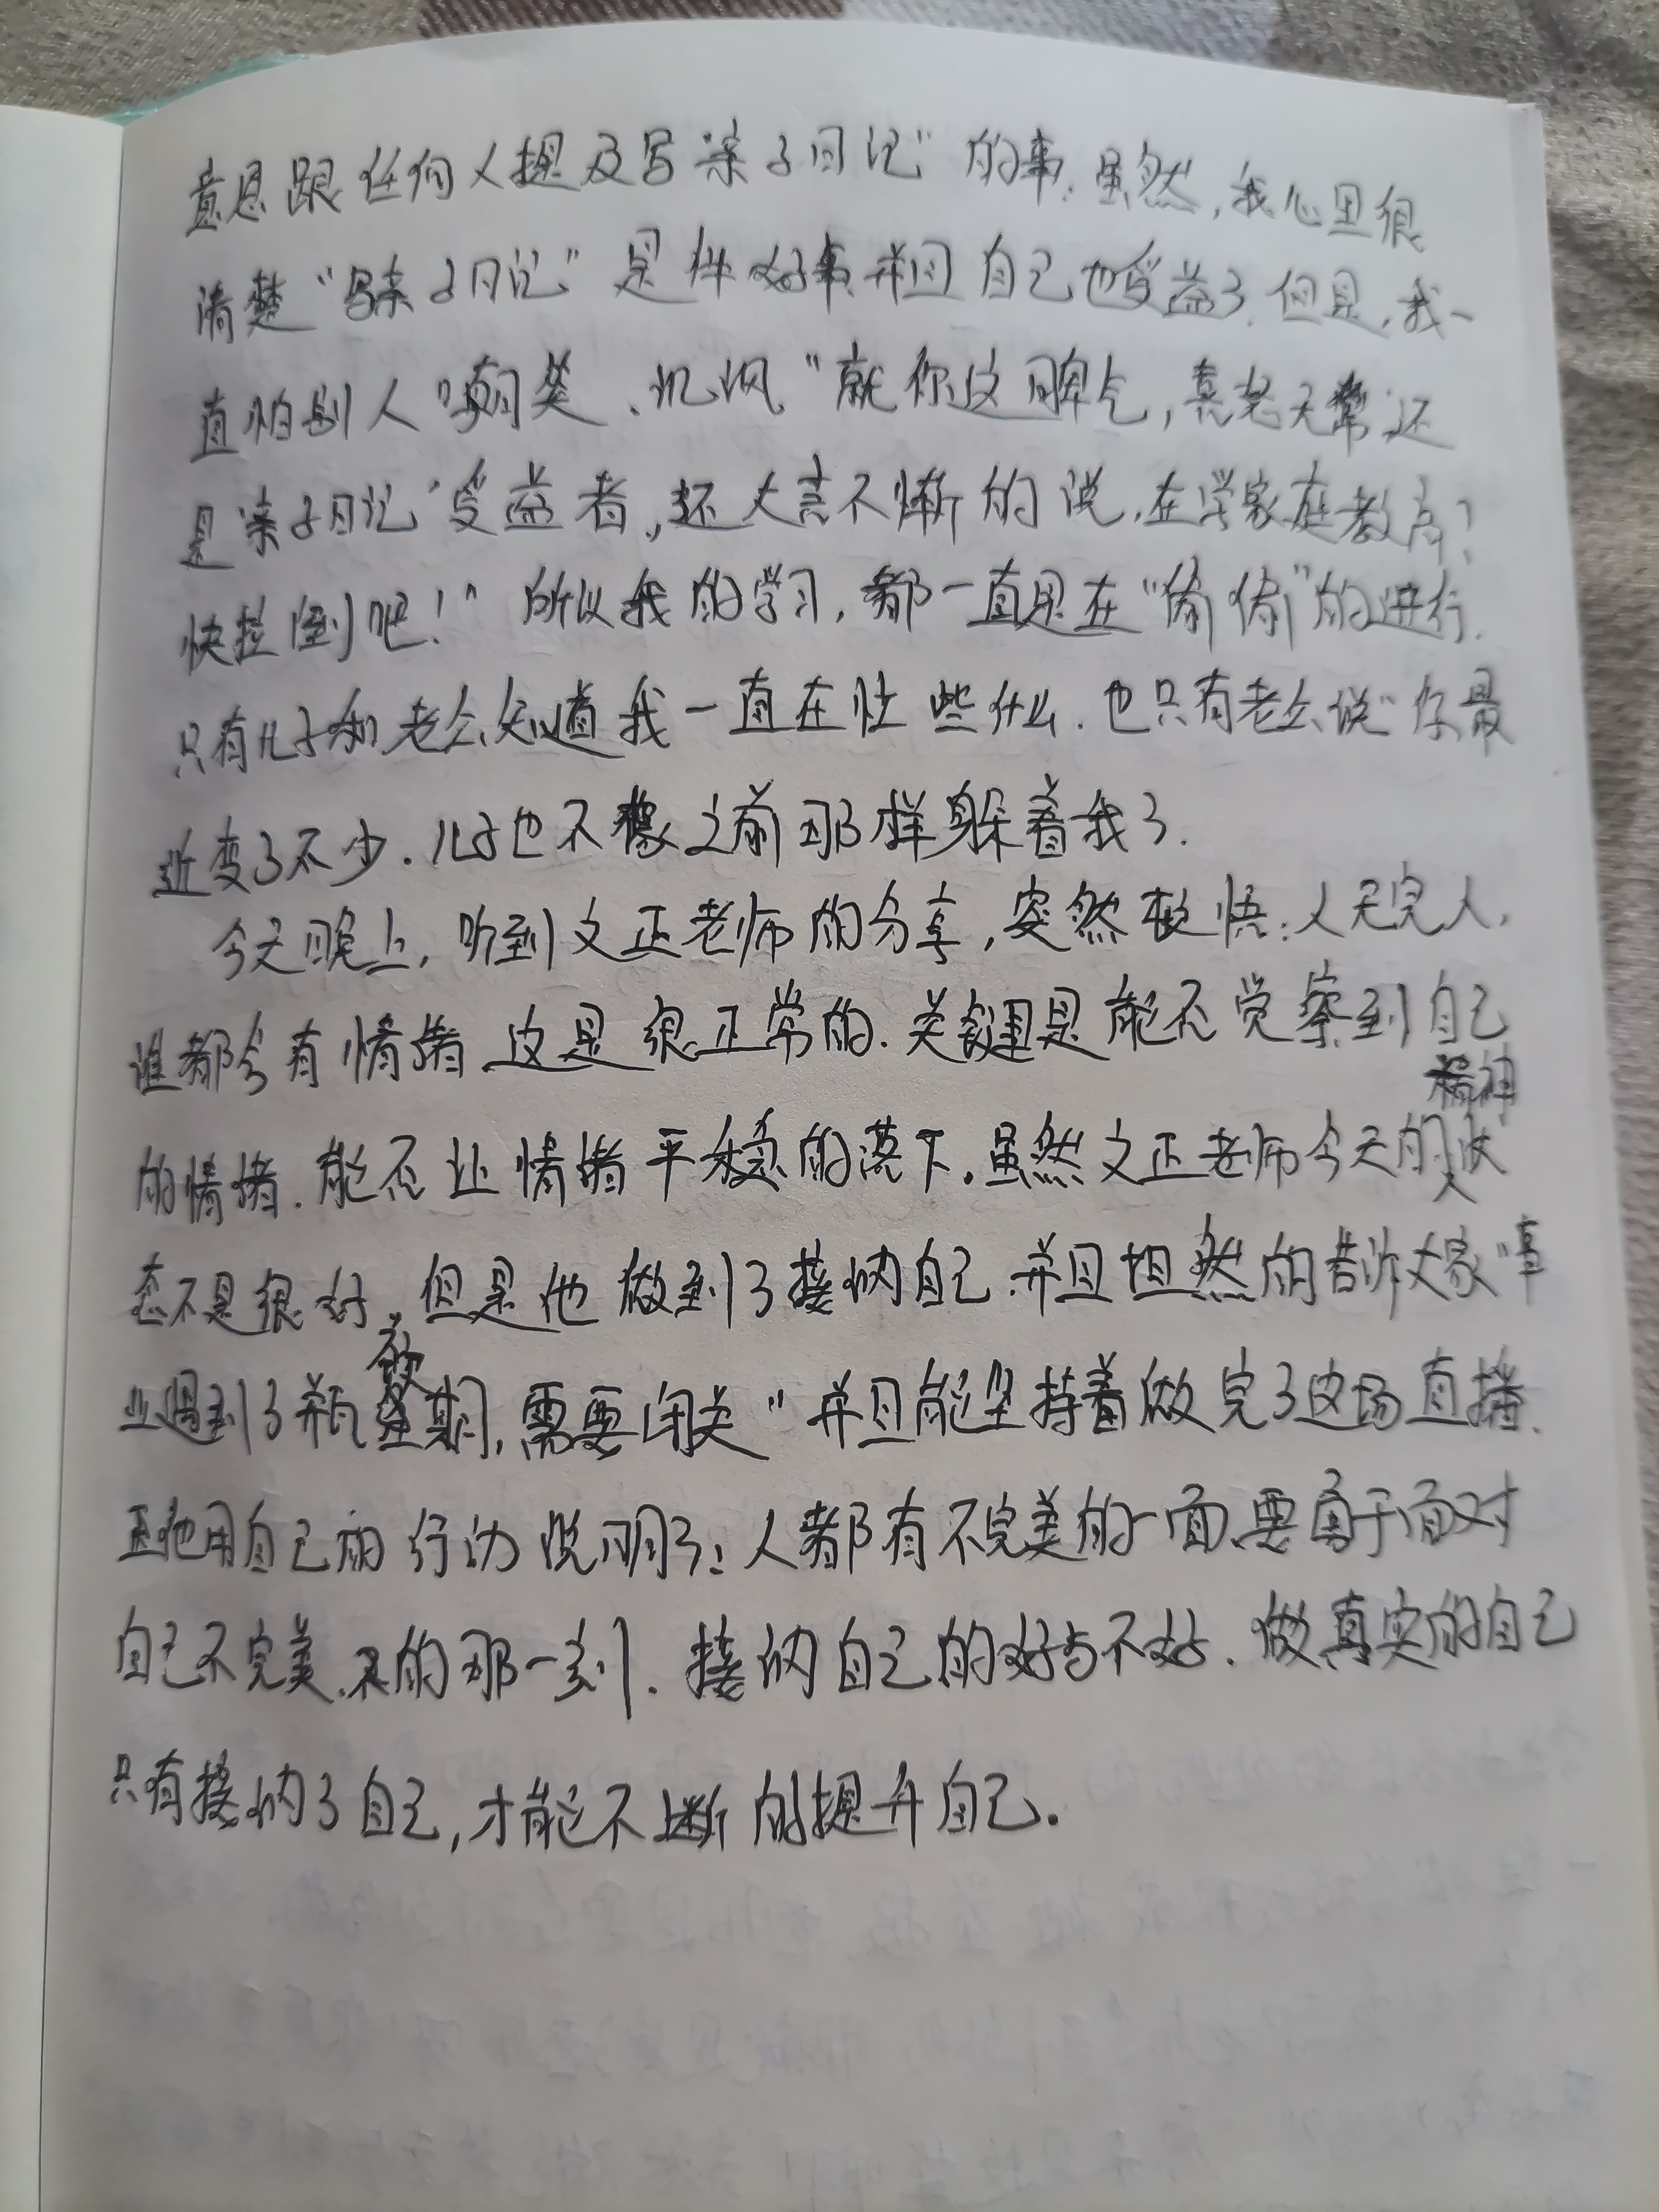 意思跟任何人提及写“亲子日记”的事.虽然,我心里很
清楚“写亲子日记”是件好事,并且自己也受益了.但是,我一
直怕别人“嘲笑、讥讽“就你这脾气,喜怒无常还
是亲子日记”受益者,还大言不惭的说,在学家庭教育?
快拉倒吧!”所以我的学习,都一直是在“偷偷”的进行.
只有儿子和老公知道我一直在忙些什么.也只有老公说“你最
近变了不少.儿子也不像之前那样躲着我了.
今天晚上,听到文正老师的分享,突然顿悟:人无完人,
谁都会有情绪这是很正常的.关键是能否觉察到自己
的情绪.能否让情绪平稳的落下.虽然文正老师今天的精神状
态不是很好,但是他做到了接纳自己.并且坦然的告诉大家“事
业遇到了瓶颈期,需要闭关”并且能坚持着做完了这场直播.
他用自己的行动说明了:人都有不完美的一面,要勇于面对
自己不完美的那一刻.接纳自己的好与不好.做真实的自己
只有接纳了自己,才能不断的提升自己.